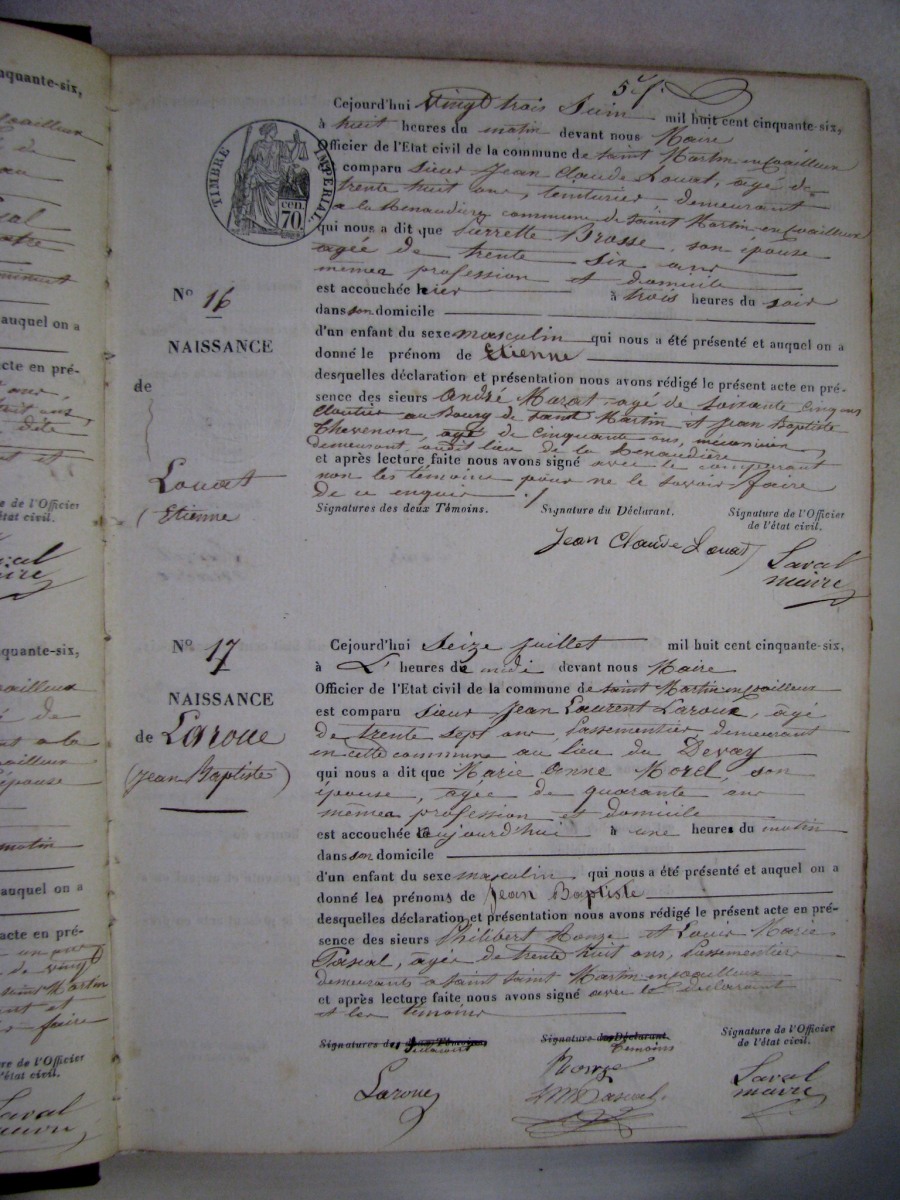 5
Cejourd'hui vingt trois Juin mil huit cent cinquante-six,
à huit heures du matin devant nous Maire
Officier de l'Etat civil de la commune de saint Martin en coailleux
est comparu sieur Jean Claude Louat, âgé de
trente huit ans, teinturier, demeurant
à la Renaudière commune de saint Martin en coailleux
qui nous a dit que Pierrette Brosse, son épouse
agée de trente six ans
mêmes profession et domicile
est accouchée hier à trois heures du soir
dans son domicile
d'un enfant du sexe masculin qui nous a été présenté et auquel on a
donné le prénom de Etienne
desquelles déclaration et présentation nous avons rédigé le présent acte en pré-
sence des sieurs André Marat agé de soixante cinq ans
cloutier au Bourg de saint Martin et Jean Baptiste
Thevenon, agé de cinquante ans, mécanicien,
demeurant audit lieu de la Renaudière
et après lecture faite nous avons signé avec le comparant
non les témoins pour ne le savoir faire
de ce enquis
Signatures des deux Témoins. Signature du Déclarant. Signature de l'Officier
de l'état civil.
Jean Claude Louat Laval
maire
TIMBRE IMPERIAL.
70 cen.
N° 16
NAISSANCE
de
Louat
(Etienne
N° 17
NAISSANCE
de Laroue
(Jean Baptiste)
Cejourd'hui seize juillet mil huit cent cinquante-six,
à L' heures de midi devant nous Maire
Officier de l'Etat civil de la commune de saint Martin en coailleux
est comparu sieur Jean Laurent Laroue, âgé
de trente sept ans, passementier, demeurant
en cette commune au lieu du Devay
qui nous a dit que Marie Anne Morel, son
épouse, agée de quarante ans
mêmes profession et domicile
est accouchée aujourd'hui à une heure du matin
dans son domicile
d'un enfant du sexe masculin qui nous a été présenté et auquel on a
donné les prénoms de Jean Baptiste
desquelles déclaration et présentation nous avons rédigé le présent acte en pré-
sence des sieurs Philibert Ronze et Louis Marie
Pascal, âgés de trente huit ans, passementiers
demeurants à saint saint Martin en coailleux
et après lecture faite nous avons signé avec le déclarant
et les témoins
Signatures des deux Témoins Signature du Déclarant Signature de l'Officier
Témoins de l'état civil.
Laroue Ronze Laval
LM Pascal maire